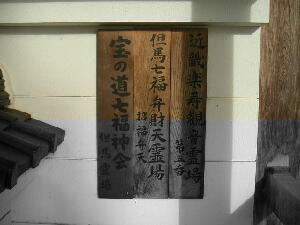 近畿楽寿観音霊場
第五番
但馬七福弁財天霊場
招福弁天
宝の道七福神会
但馬霊場